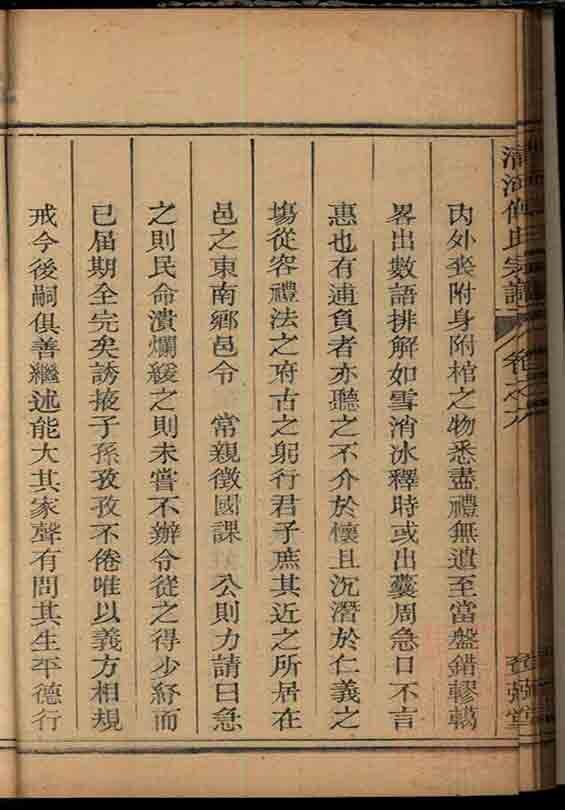 清河傅氏宗譜
卷之六
內外喪附身附棺之物悉盡禮無遺至當盤錯轇轕
畧出數語排解如雪消冰釋時或出囊周急口不言
惠也有逋負者亦聽之不介於懷且沉潛於仁義之
塲從容禮法之府古之躬行君子庶其近之所居在
邑之東南鄉邑令 常親徵國課 公則力請曰急
之則民命潰爛緩之則未嘗不辦令從之得少紓而
已屆期全完矣誘掖子孫孜孜不倦唯以義方相規
戒今後嗣俱善繼述能大其家聲有問其生平德行
堂